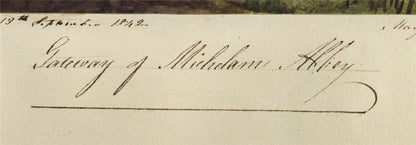 13th September 1842
May
Gateway of Michelam Abbey